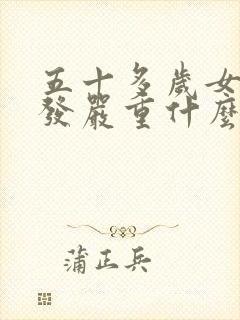 五十多歲女
發嚴重什麼
蒲正兵